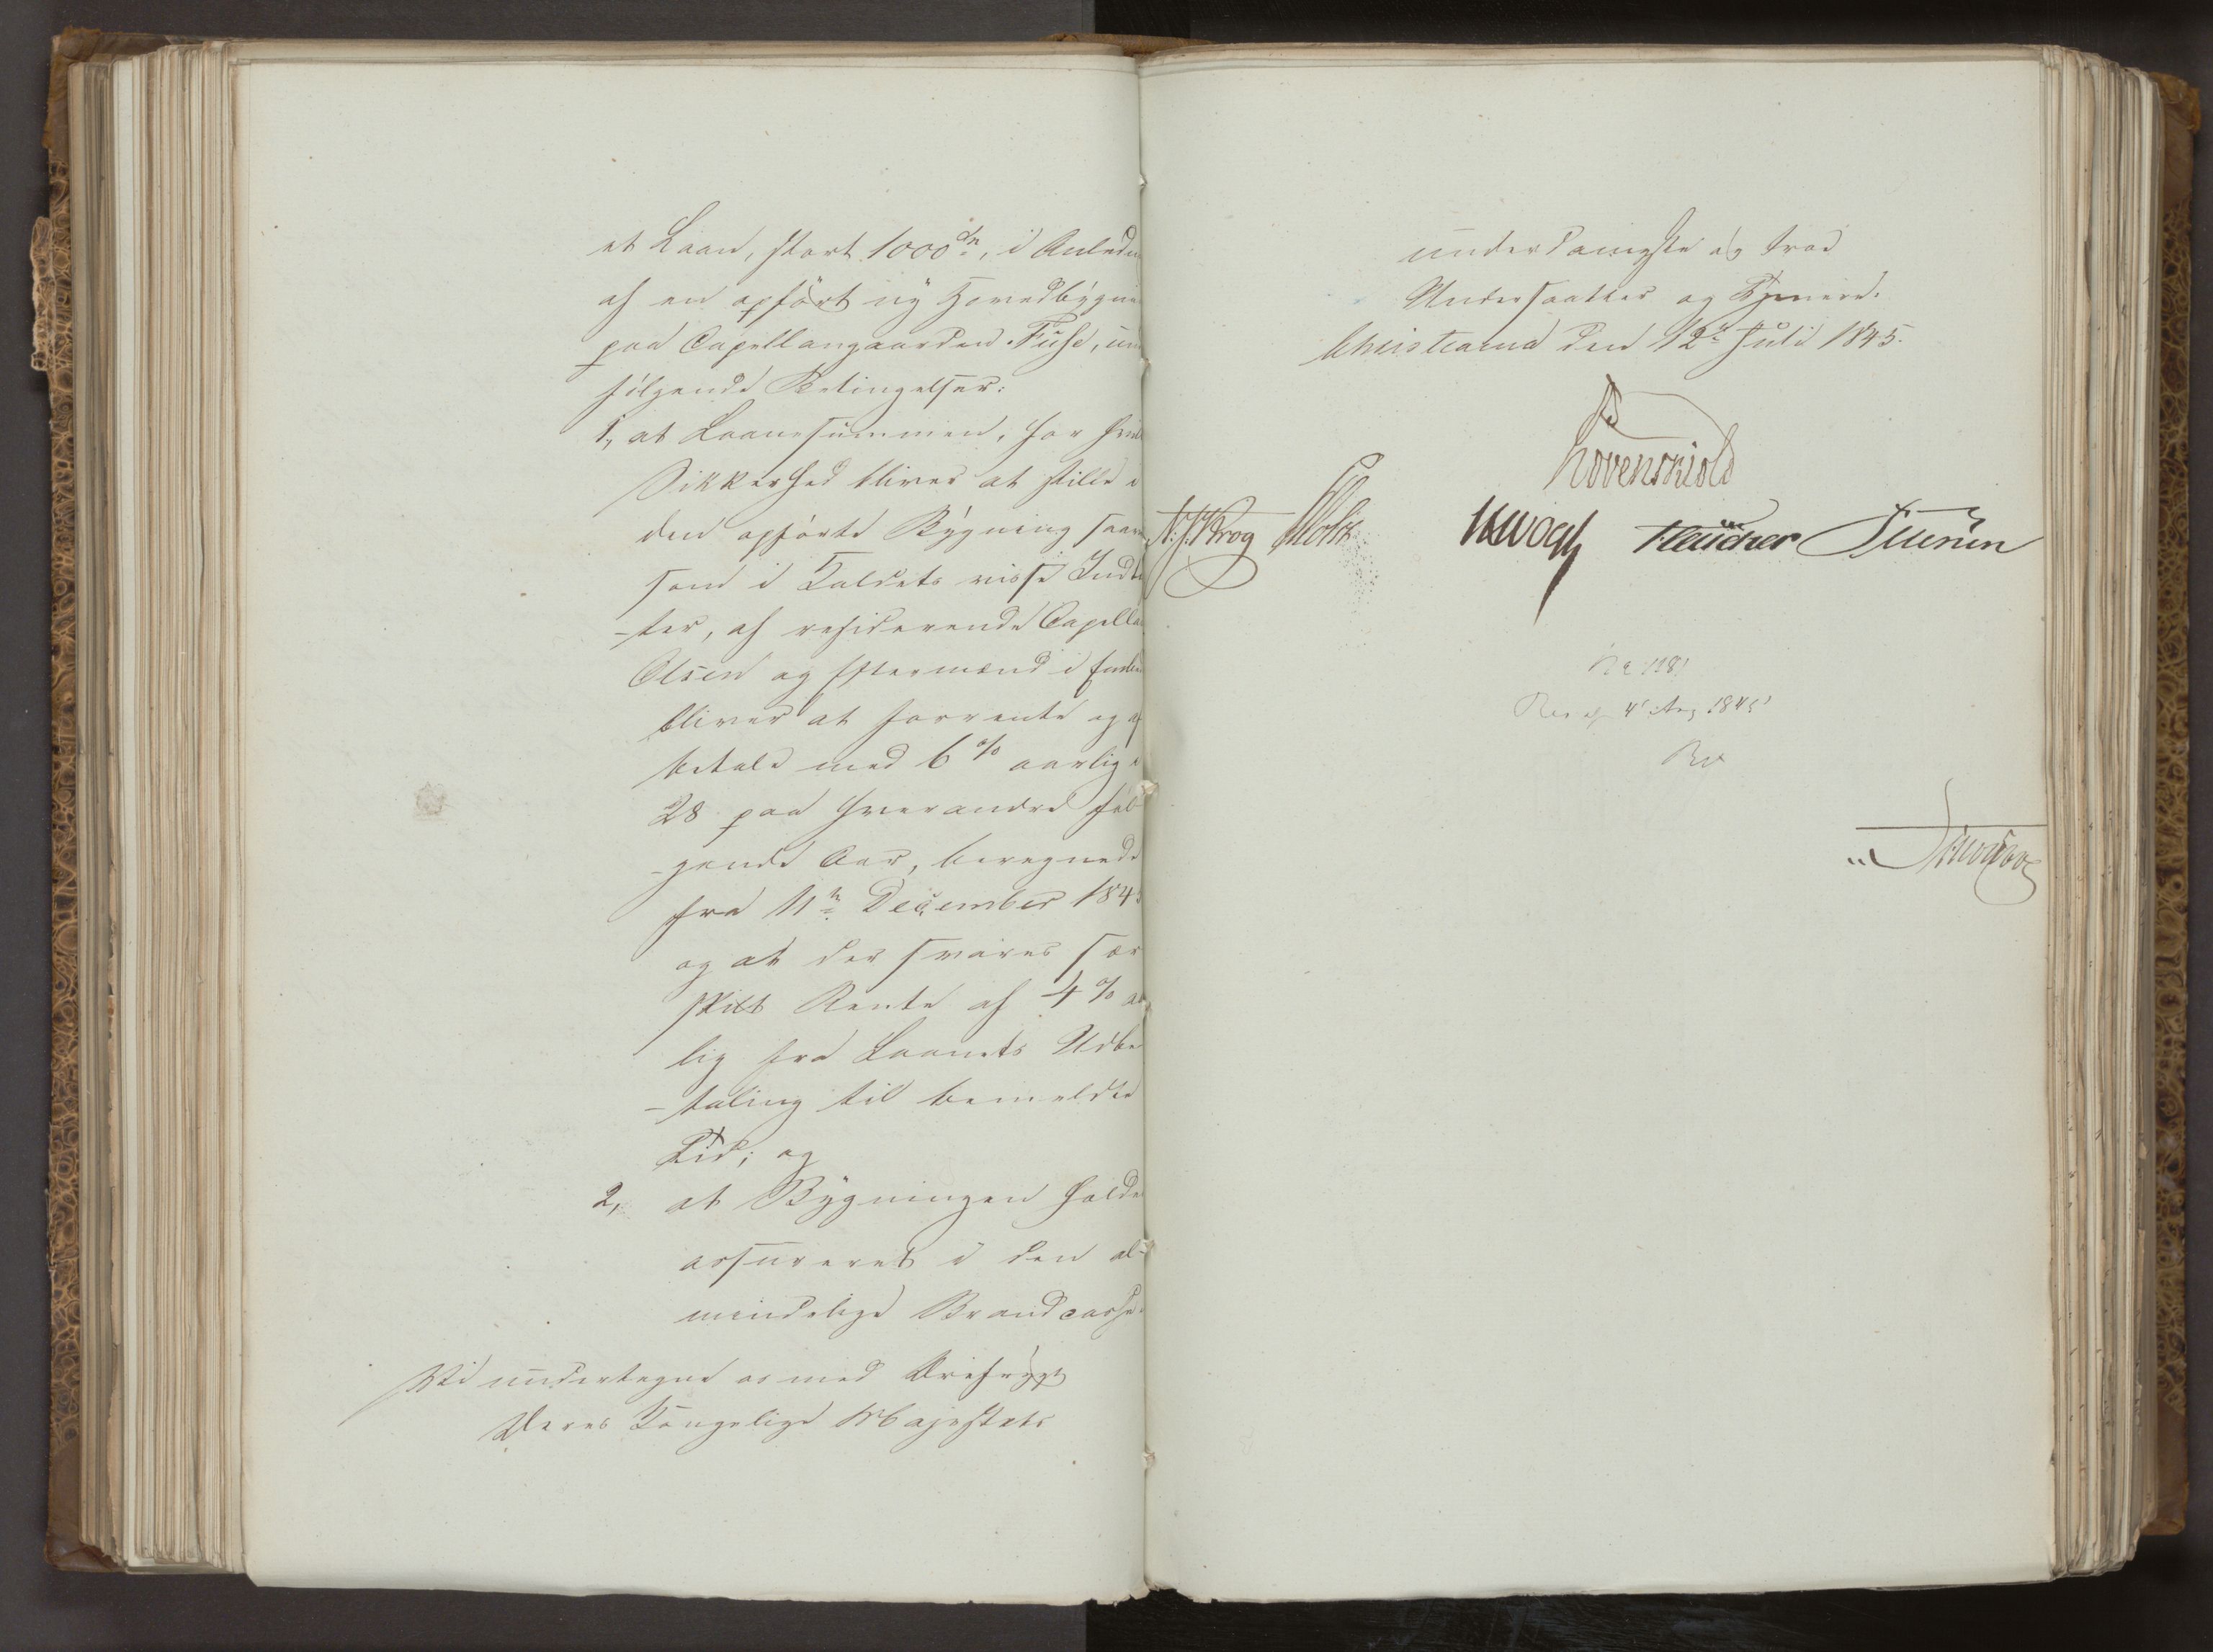 et Laan, stort 1000 Sp, i Anledn
af en opført ny Hovedbygni
paa Capellangaarden Fuse, un
følgende Betingelser:
1, at Laanesummen, for hvil
Sikkerhed bliver at stille i
den opførte Bygning saa
som i Kaldets visse Indt
-ter, af residerende Capella
Olsen og Eftermænd i Embe
bliver at forrente og af
betale med 6 % aarlig i
28 paa hverandre føl
-gende Aar, beregnede
fra 11te December 1845
og at der svares sær
skilt Rente af 4 % aa
lig fra Laanets Udbe
-taling til bemeldte
Tid; og
2, at Bygningen holde
assureret i den al-
mindelige Brandcasse.
Vi undertegne os med Ærefrygt
Deres Kongelige Majestæts
underdanigste og troe
Undersaatter og Tjenere.
Christiania den 12te Juli 1845.
Løvenskiold
N. J. Krog
Vogt
Res af 4' Aug 1845